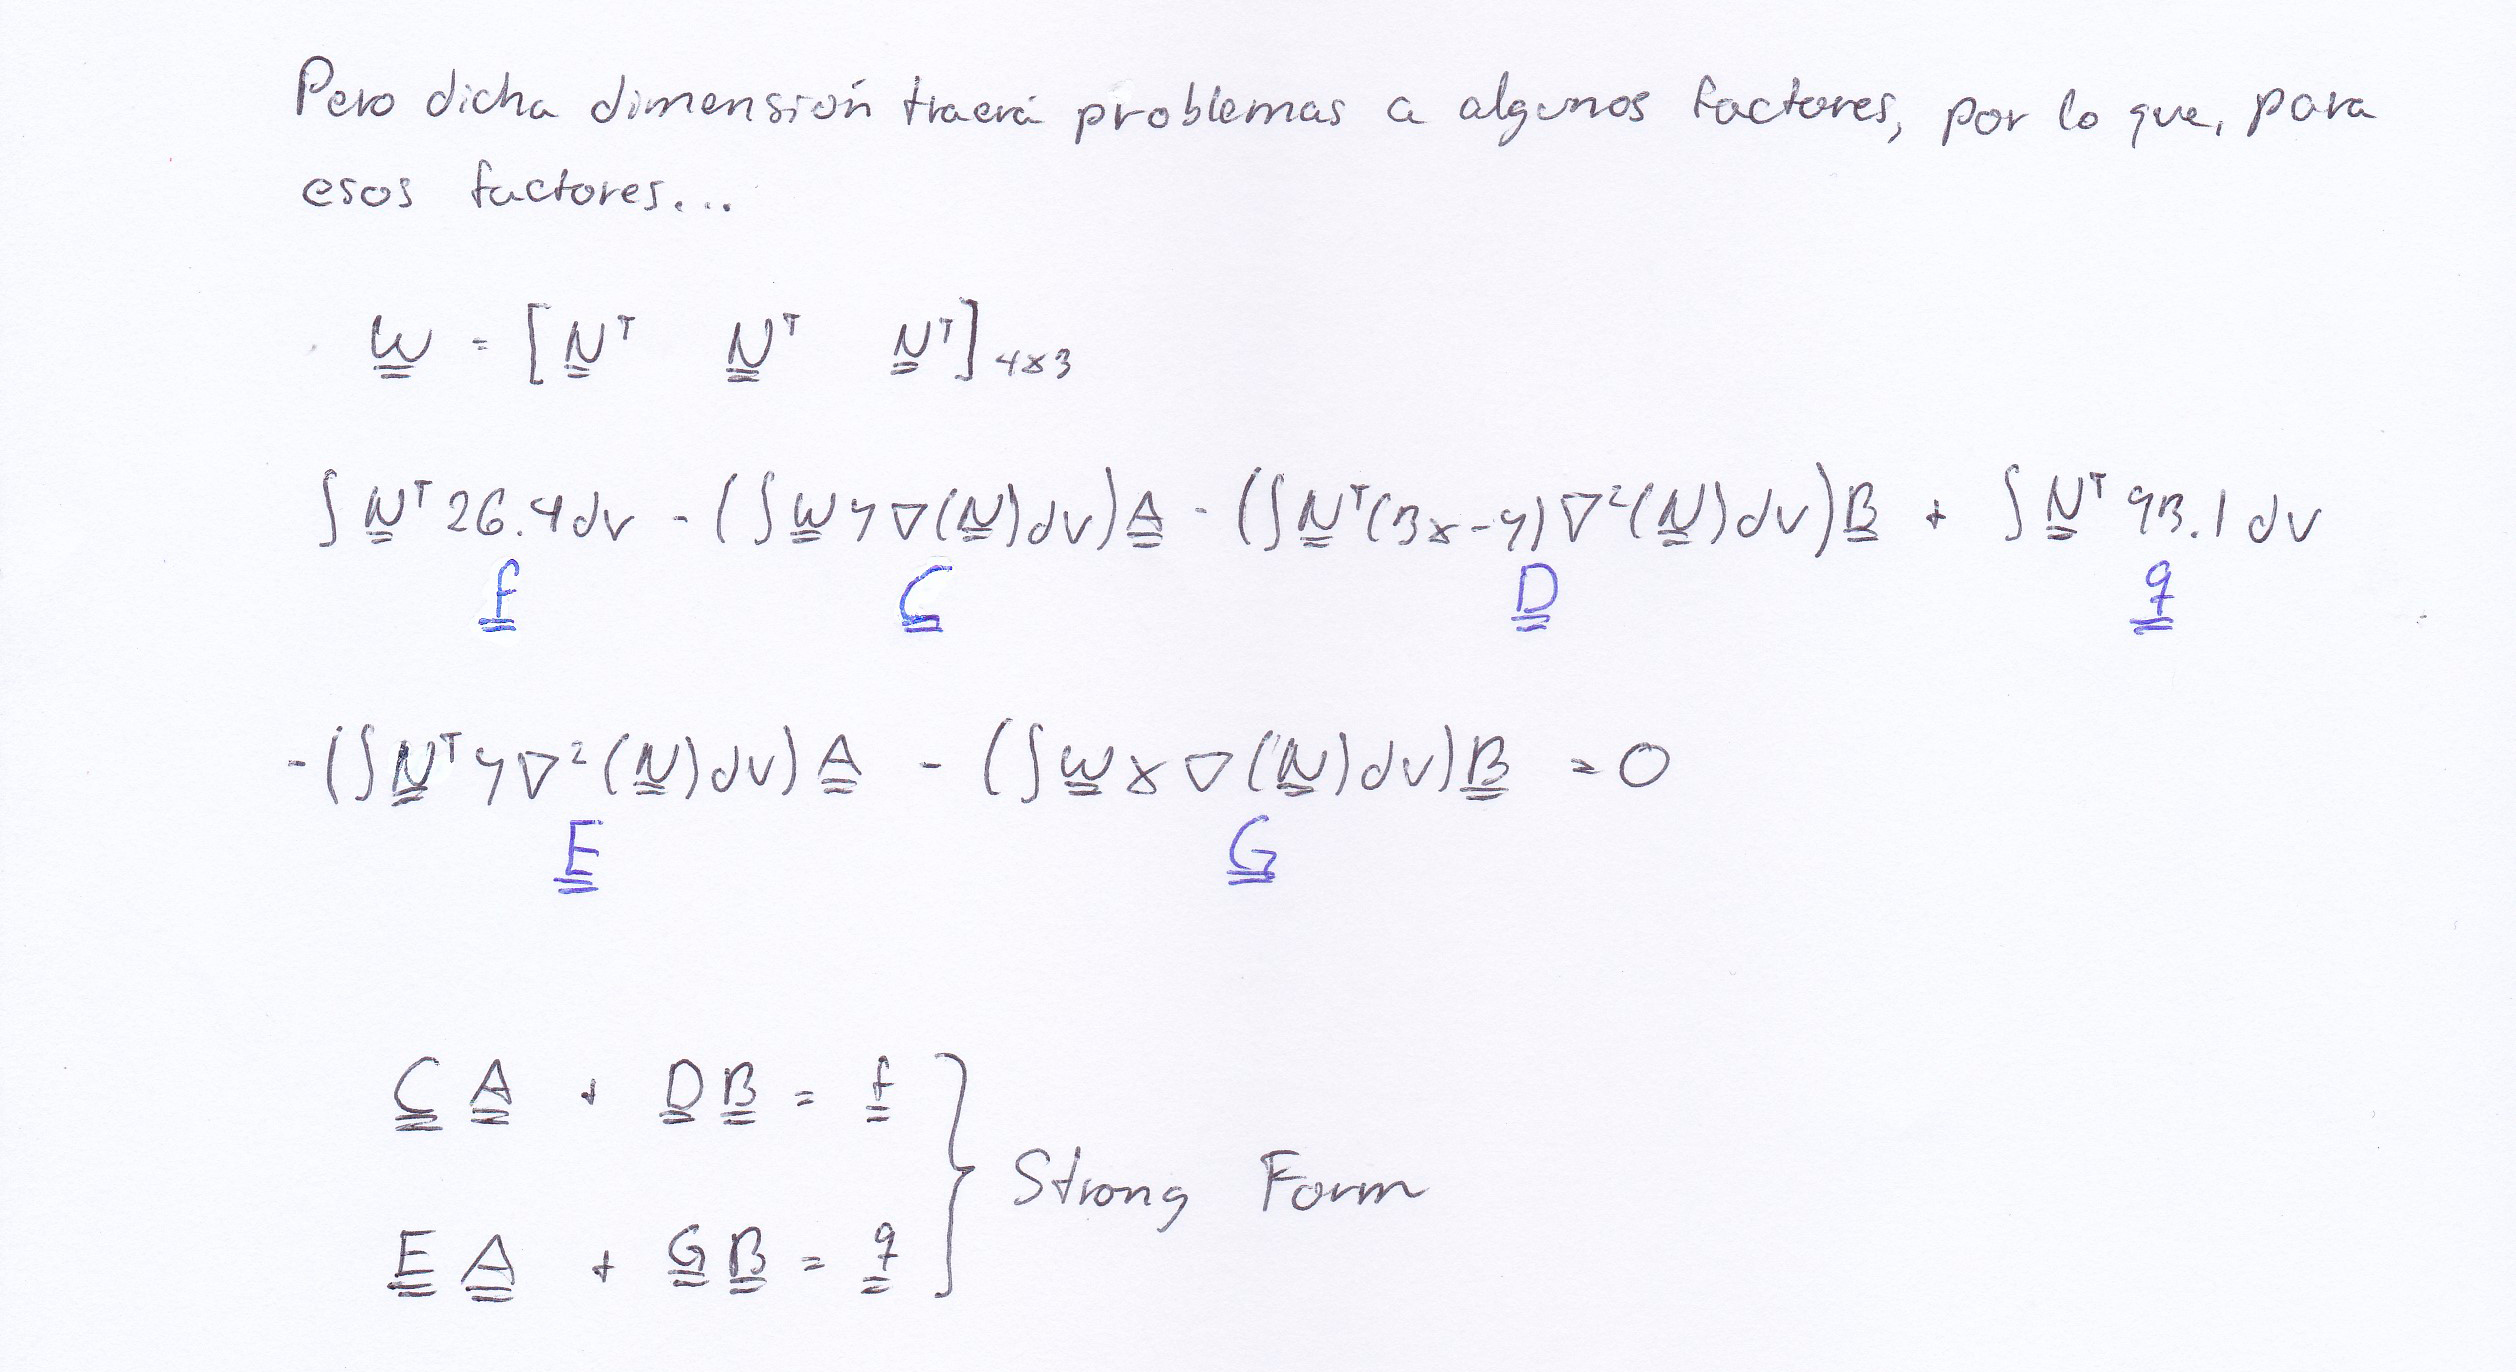 Pero dicha dimensión traerá problemas a algunos factores, por lo que, para
esos factores...
W = [N^T N^T N^T]_{4x3}
∫ N^T 26.4 dv - (∫ W y ∇(N) dv) A - (∫ N^T (3x-y) ∇²(N) dv) B + ∫ N^T 93.1 dv
f C D q
-(∫ N^T y ∇²(N) dv) A - (∫ W x ∇(N) dv) B = 0
E G
C A + D B = f
Strong Form
E A + G B = q